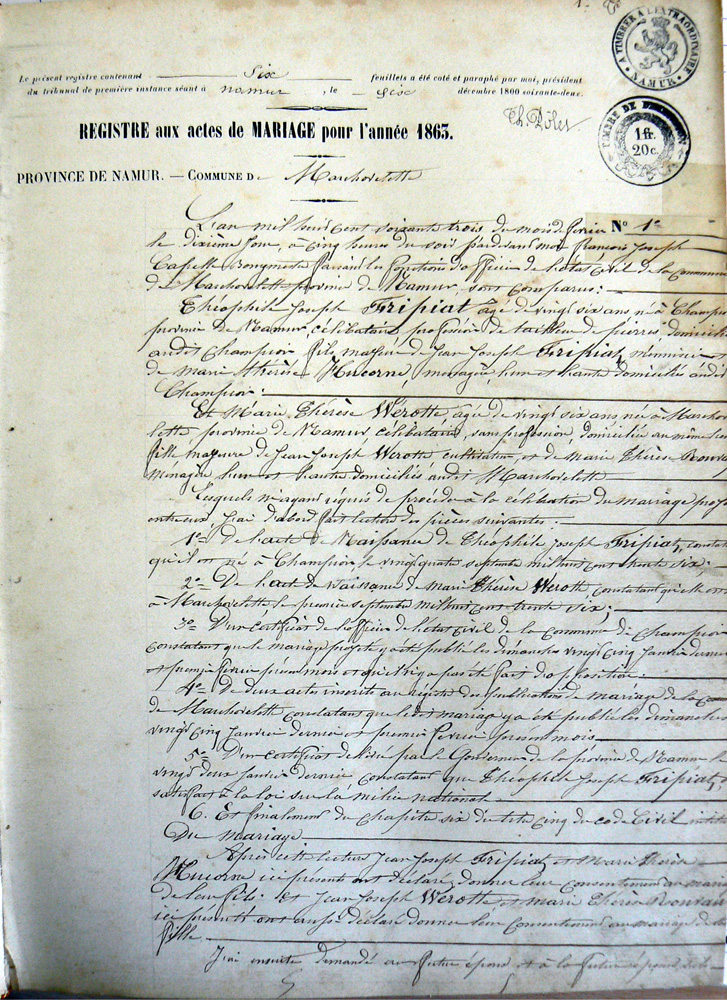 A TIMBRER A L'EXTRAORDINAIRE
NAMUR
1 fr.
20 c.
Le présent registre contenant six feuillets a été coté et paraphé par moi, président
du tribunal de première instance séant à namur, le six décembre 1800 soixante-deux.
REGISTRE aux actes de MARIAGE pour l'année 1863.
PROVINCE DE NAMUR. — COMMUNE De Marchovelette
N° 1er
L'an mil huit cent soixante trois du mois de février
le dixième jour, à cinq heures du soir pardevant moi françois Joseph
Capelle Bourgmestre faisant les fonctions d'officier de l'état civil de la commune
de Marchovelette province de Namur, sont comparus:
Théophile Joseph Fripiat âgé de vingt six ans né à Champion
province de Namur, célibataire, profession de tailleur de pierres, domicilié
audit Champion, fils majeur de Jean Joseph Fripiat, et
de marie thérèse Hucorne, ménagère, lieur et domiciliés audit
Champion:
Et Marie Thérèse Werotte âgée de vingt six ans née à Marchove
lette province de Namur célibataire, sans profession, domiciliée au même lieu
fille majeure de Jean Joseph Werotte cultivateur, et de Marie Thérèse
ménagère domiciliés audit Marchovelette
Lesquels m'ayant requis de procéder à la célébration du mariage projeté
entre eux, j'ai d'abord fait lecture des pièces suivantes:
1° De l'acte de Naissance de Théophile Joseph Fripiat, constatant
qu'il est né à Champion le vingt quatre septembre mil huit cent trente six;
2° De l'acte de naissance de marie thérèse Werotte, constatant qu'elle est née
à Marchovelette le premier septembre mil huit cent trente six;
3° D'un certificat de l'officier de l'état civil de la commune de Champion
constatant que le mariage projeté y a été publié les dimanches vingt cinq Janvier dernier
et premier février présent mois et qu'il n'y a pas été fait d'opposition.
4° De deux actes inscrits au registre des publications de mariage de la commune
de Marchovelette constatant que ledit mariage y a été publié les dimanches
vingt cinq Janvier dernier et premier février présent mois
5° D'un certificat délivré par le Gouverneur de la province de Namur le
vingt deux Janvier dernier constatant que Théophile Joseph Fripiat,
satisfait à la loi sur la milice nationale
6. Et finalement du chapitre six du titre cinq du code Civil intitulé
Du mariage
Après cette lecture Jean Joseph Fripiat et Marie thérèse
Hucorne ici présents ont déclaré donner leur consentement au mariage
de leur fils. Et Jean Joseph Werotte et marie Thérèse
ici présents ont aussi déclaré donner leur consentement au mariage de leur
fille
J'ai ensuite demandé au futur époux et à la future épouse